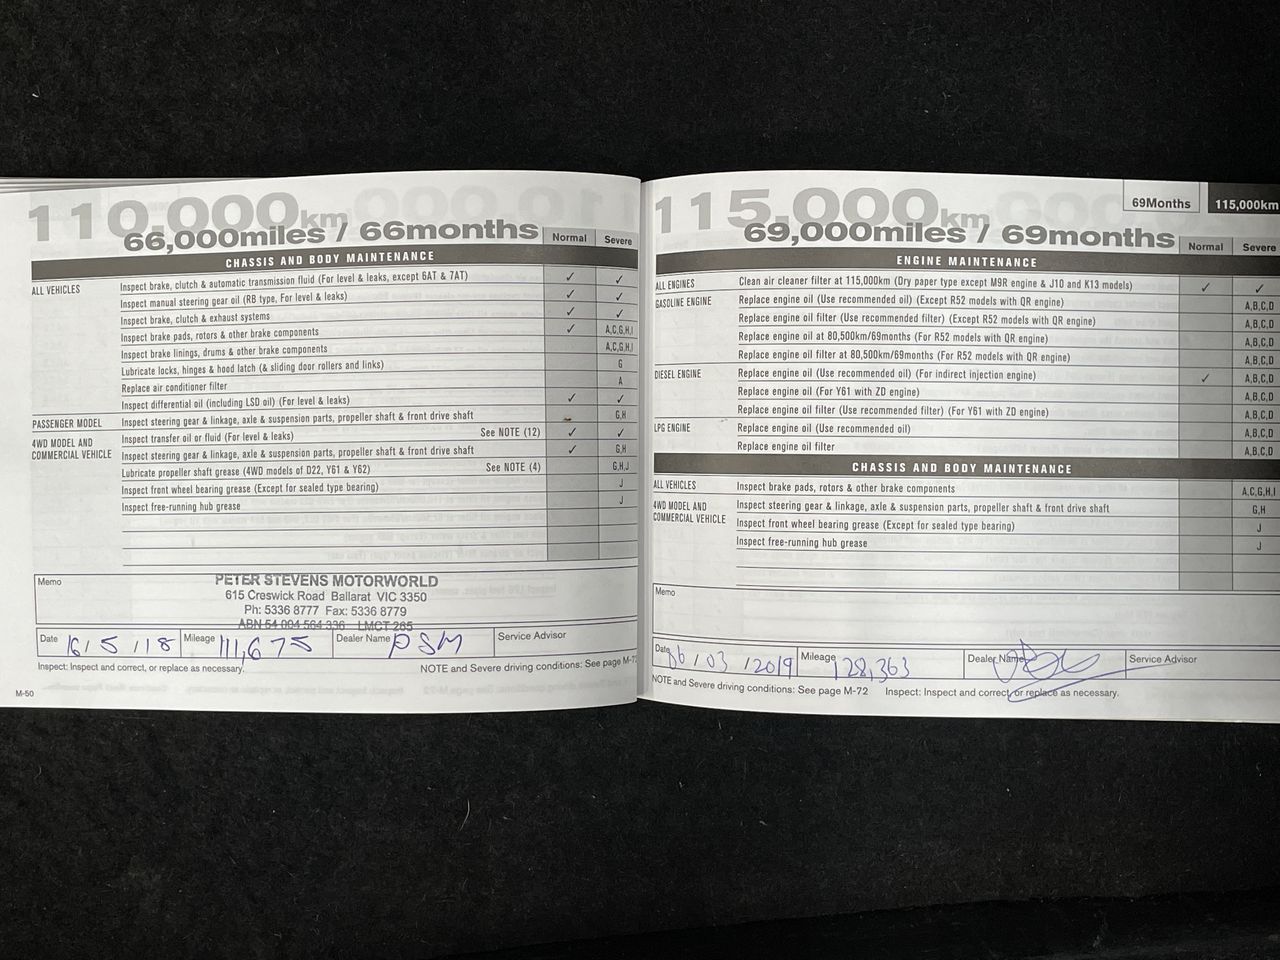 110,000km
66,000miles / 66months
Normal Severe
CHASSIS AND BODY MAINTENANCE
ALL VEHICLES Inspect brake, clutch & automatic transmission fluid (For level & leaks, except 6AT & 7AT) ✓ ✓
Inspect manual steering gear oil (RB type, For level & leaks) ✓ ✓
Inspect brake, clutch & exhaust systems ✓ ✓
Inspect brake pads, rotors & other brake components ✓ A,C,G,H,I
Inspect brake linings, drums & other brake components A,C,G,H,I
Lubricate locks, hinges & hood latch (& sliding door rollers and links) G
Replace air conditioner filter A
Inspect differential oil (including LSD oil) (For level & leaks) ✓ ✓
PASSENGER MODEL Inspect steering gear & linkage, axle & suspension parts, propeller shaft & front drive shaft G,H
4WD MODEL AND COMMERCIAL VEHICLE Inspect transfer oil or fluid (For level & leaks) See NOTE (12) ✓ ✓
Inspect steering gear & linkage, axle & suspension parts, propeller shaft & front drive shaft ✓ G,H
Lubricate propeller shaft grease (4WD models of D22, Y61 & Y62) See NOTE (4) G,H,J
Inspect front wheel bearing grease (Except for sealed type bearing) J
Inspect free-running hub grease J
Memo
PETER STEVENS MOTORWORLD
615 Creswick Road Ballarat VIC 3350
Ph: 5336 8777 Fax: 5336 8779
ABN 54 004 564 336 LMCT 265
Date 16/5/18 Mileage 111,675 Dealer Name PSM Service Advisor
Inspect: Inspect and correct, or replace as necessary. NOTE and Severe driving conditions: See page M-72
M-50
115,000km
69Months 115,000km
69,000miles / 69months
Normal Severe
ENGINE MAINTENANCE
ALL ENGINES Clean air cleaner filter at 115,000km (Dry paper type except M9R engine & J10 and K13 models) ✓ ✓
GASOLINE ENGINE Replace engine oil (Use recommended oil) (Except R52 models with QR engine) A,B,C,D
Replace engine oil filter (Use recommended filter) (Except R52 models with QR engine) A,B,C,D
Replace engine oil at 80,500km/69months (For R52 models with QR engine) A,B,C,D
Replace engine oil filter at 80,500km/69months (For R52 models with QR engine) A,B,C,D
DIESEL ENGINE Replace engine oil (Use recommended oil) (For indirect injection engine) ✓ A,B,C,D
Replace engine oil (For Y61 with ZD engine) A,B,C,D
Replace engine oil filter (Use recommended filter) (For Y61 with ZD engine) A,B,C,D
LPG ENGINE Replace engine oil (Use recommended oil) A,B,C,D
Replace engine oil filter A,B,C,D
CHASSIS AND BODY MAINTENANCE
ALL VEHICLES Inspect brake pads, rotors & other brake components A,C,G,H,I
4WD MODEL AND COMMERCIAL VEHICLE Inspect steering gear & linkage, axle & suspension parts, propeller shaft & front drive shaft G,H
Inspect front wheel bearing grease (Except for sealed type bearing) J
Inspect free-running hub grease J
Memo
Date 06/03/2019 Mileage 128,363 Dealer Name Service Advisor
NOTE and Severe driving conditions: See page M-72 Inspect: Inspect and correct, or replace as necessary.